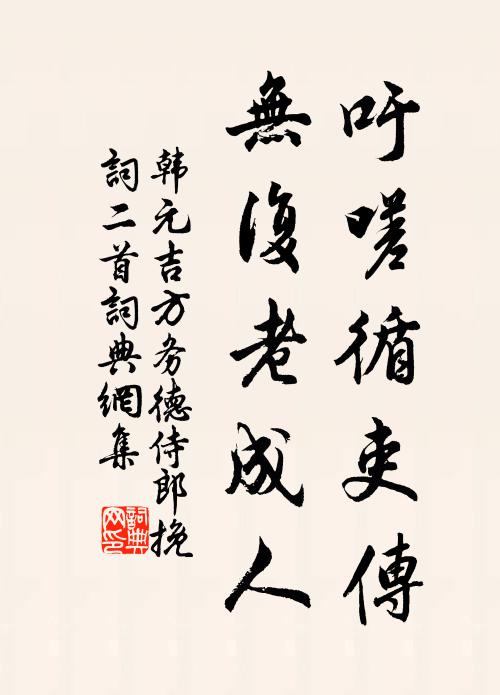 吁嗟循吏傳
無復老成人
韩元吉方务德侍郎挽
詞二首詞典網集
詞典网印